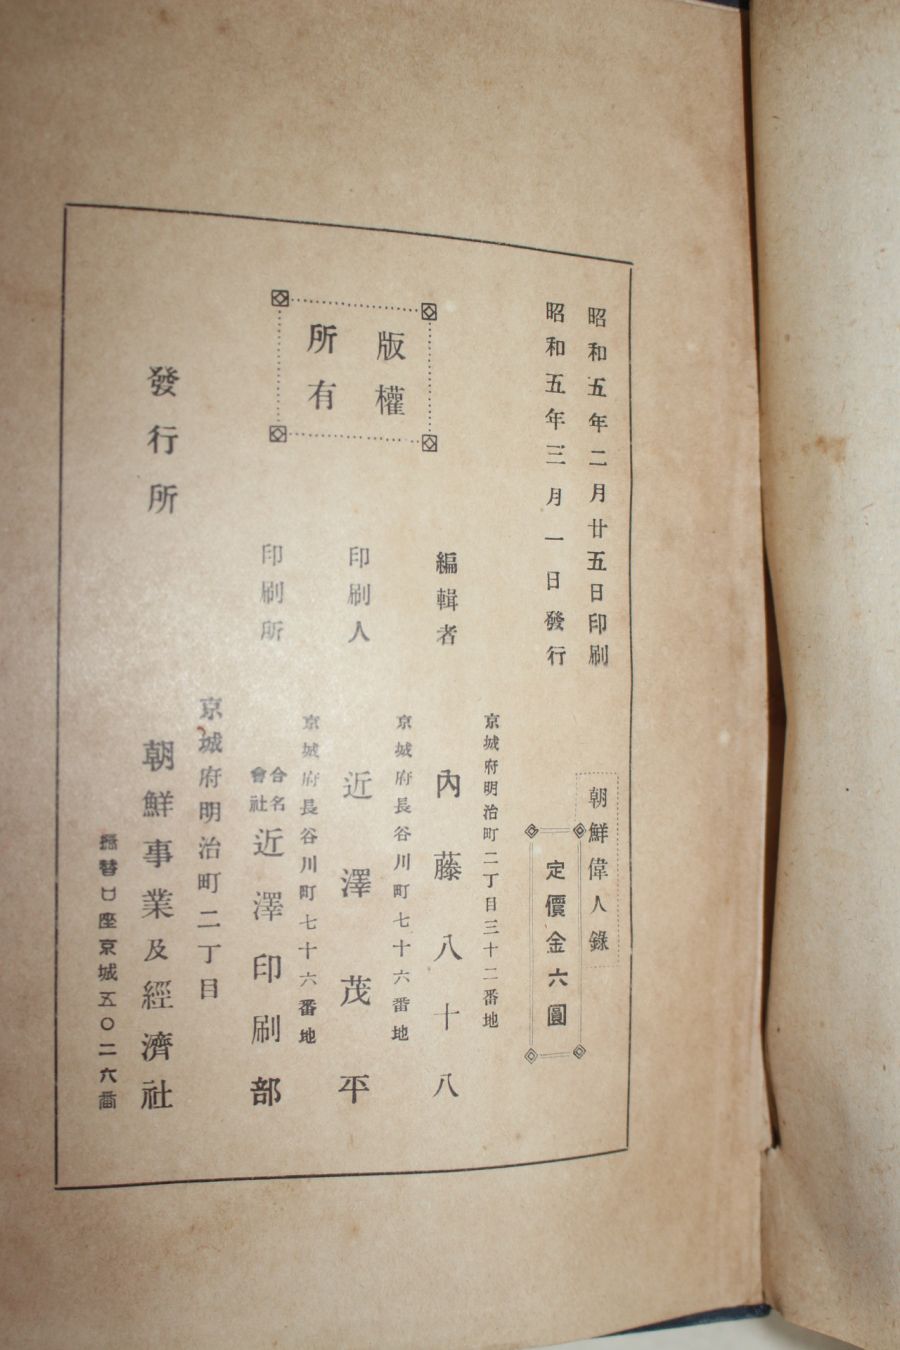 昭和五年二月廿五日印刷
昭和五年三月一日發行
朝鮮偉人錄
定價金六圓
版權
所有
京城府明治町二丁目三十二番地
編輯者 內藤八十八
京城府長谷川町七十六番地
印刷人 近澤茂平
京城府長谷川町七十六番地
印刷所 合名會社 近澤印刷部
京城府明治町二丁目
發行所 朝鮮事業及經濟社
振替口座京城五〇二六番